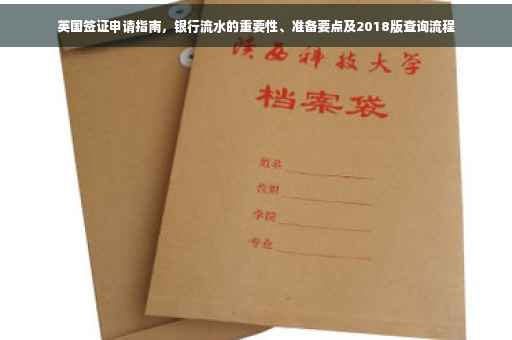 英国签证申请指南，银行流水的重要性、准备要点及2018版查询流程
陕西科技大学
档案袋
姓名
性别
学院
专业